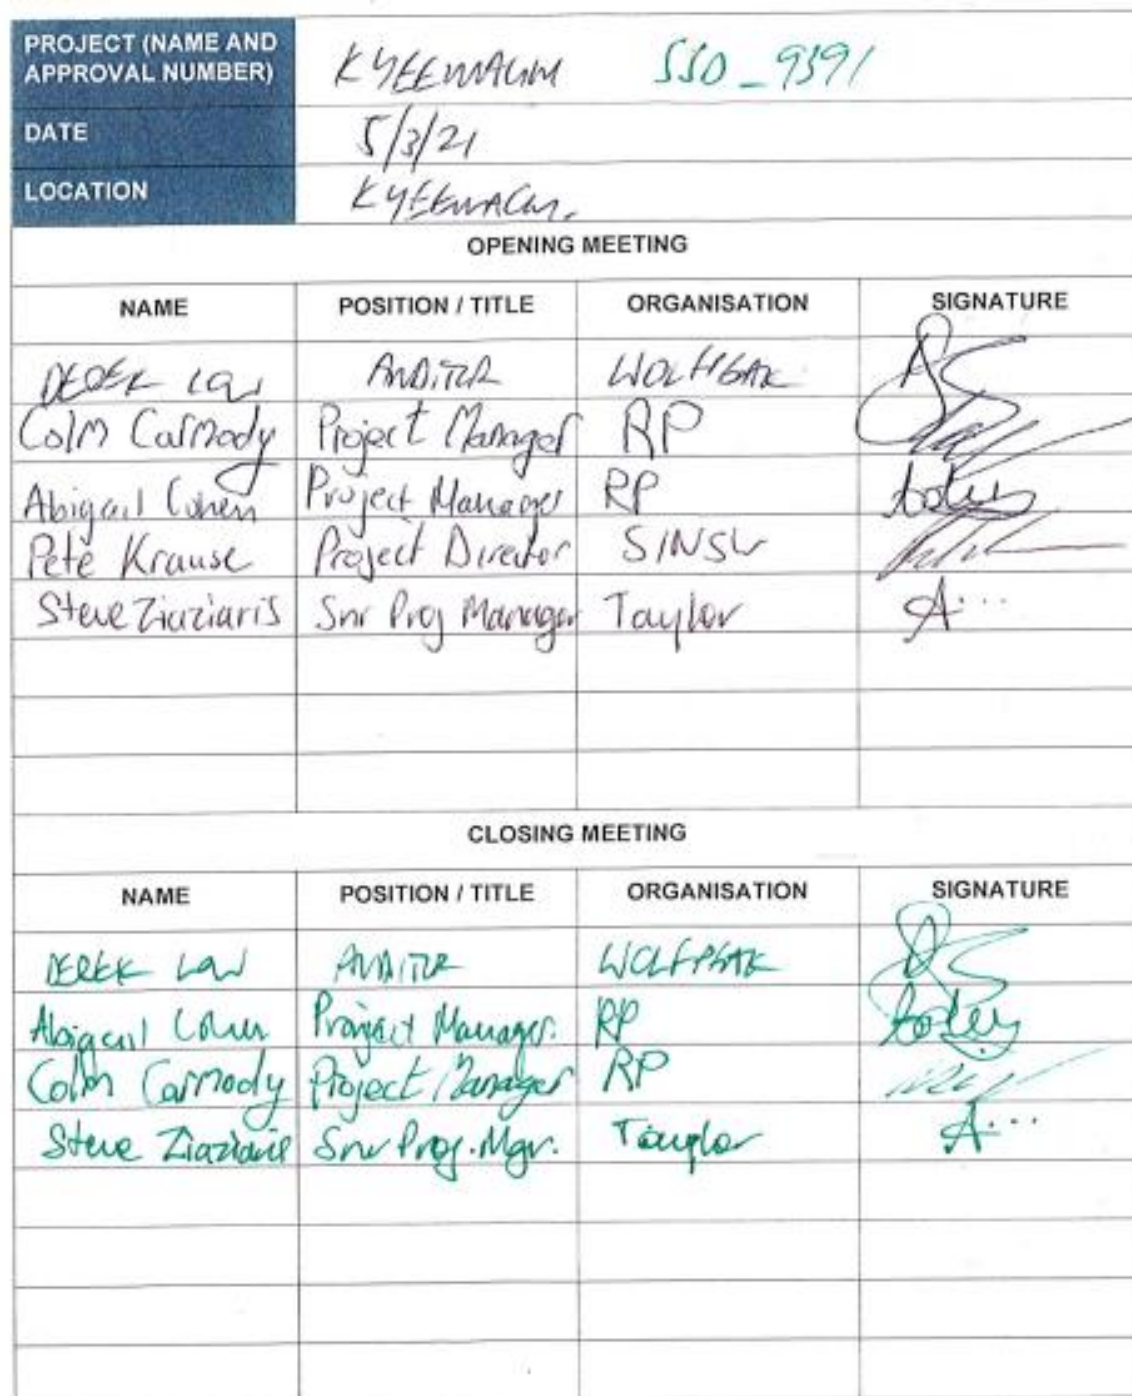 PROJECT (NAME AND APPROVAL NUMBER) KYEEMAGH SSD_9391
DATE 5/3/21
LOCATION KYEEMAGH.
OPENING MEETING
NAME POSITION / TITLE ORGANISATION SIGNATURE
DEREK LOW AUDITOR WOLFPEAK
Colm Carmody Project Manager RP
Abigail Cohen Project Manager RP
Pete Krause Project Director SINSW
Steve Ziaziaris Snr Proj Manager Taylor
CLOSING MEETING
NAME POSITION / TITLE ORGANISATION SIGNATURE
DEREK LOW AUDITOR WOLFPEAK
Abigail Cohen Project Manager. RP
Colm Carmody Project Manager RP
Steve Ziaziaris Snr Proj. Mgr. Taylor